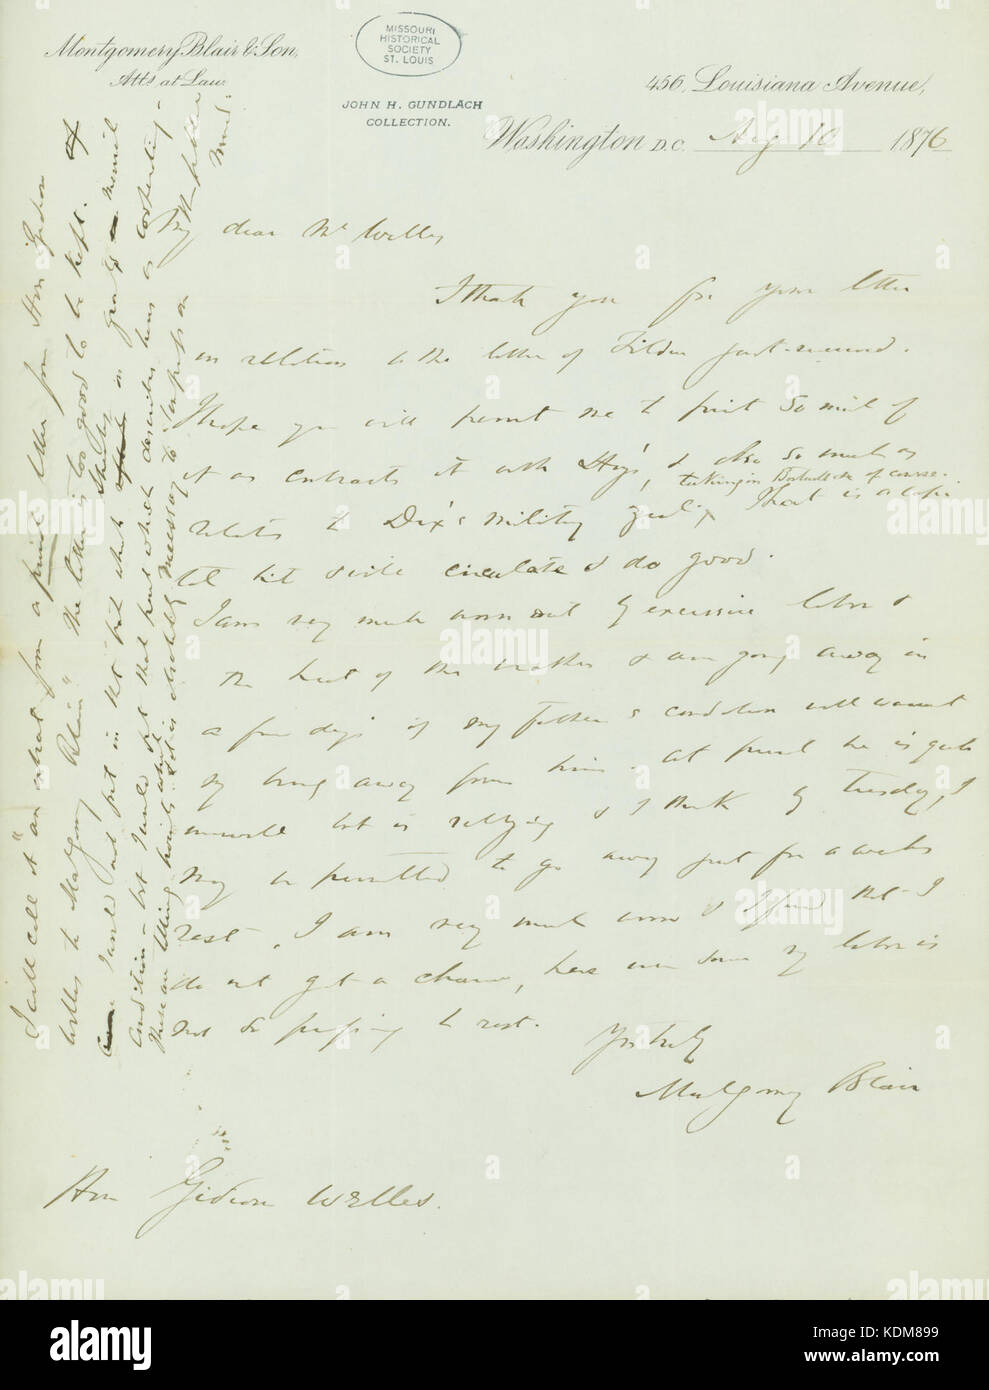 Montgomery Blair & Son,
Atts. at Law
MISSOURI
HISTORICAL
SOCIETY
ST. LOUIS
JOHN H. GUNDLACH
COLLECTION.
456, Louisiana Avenue,
Washington D.C. Aug 10 1876
My dear Mr Welles
I thank you for your letter
in relation to the letter of Tilden just received.
I hope you will permit me to print so much of
it as contrasts it with Hays', & also so much as
taking in of course.
relates to Dix's military zeal. That is a
circulate & do good.
I am very much worn out by excessive labor &
the heat of the weather & am going away in
a few days if my Father's condition will warrant
my being away from him. At present he is quite
unwell but is rallying & I think by Tuesday, I
may be permitted to go away just for a weeks
rest. I am very much worn & I find that I
do not get a chance, here even when my labor is
not so pressing to rest.
Yrs truly
Montgomery Blair
Hon Gideon Welles.
I will call it "an extract from a private letter from Hon Gideon
Welles to Montgomery Blair" The letter is too good to be kept.
I would not put in that part which on
condition - but I would put that part which describes him as
There are it is absolutely necessary to impress on
the public
mind."
alamy
a
alamy stock photo
Image ID: KDM899
www.alamy.com